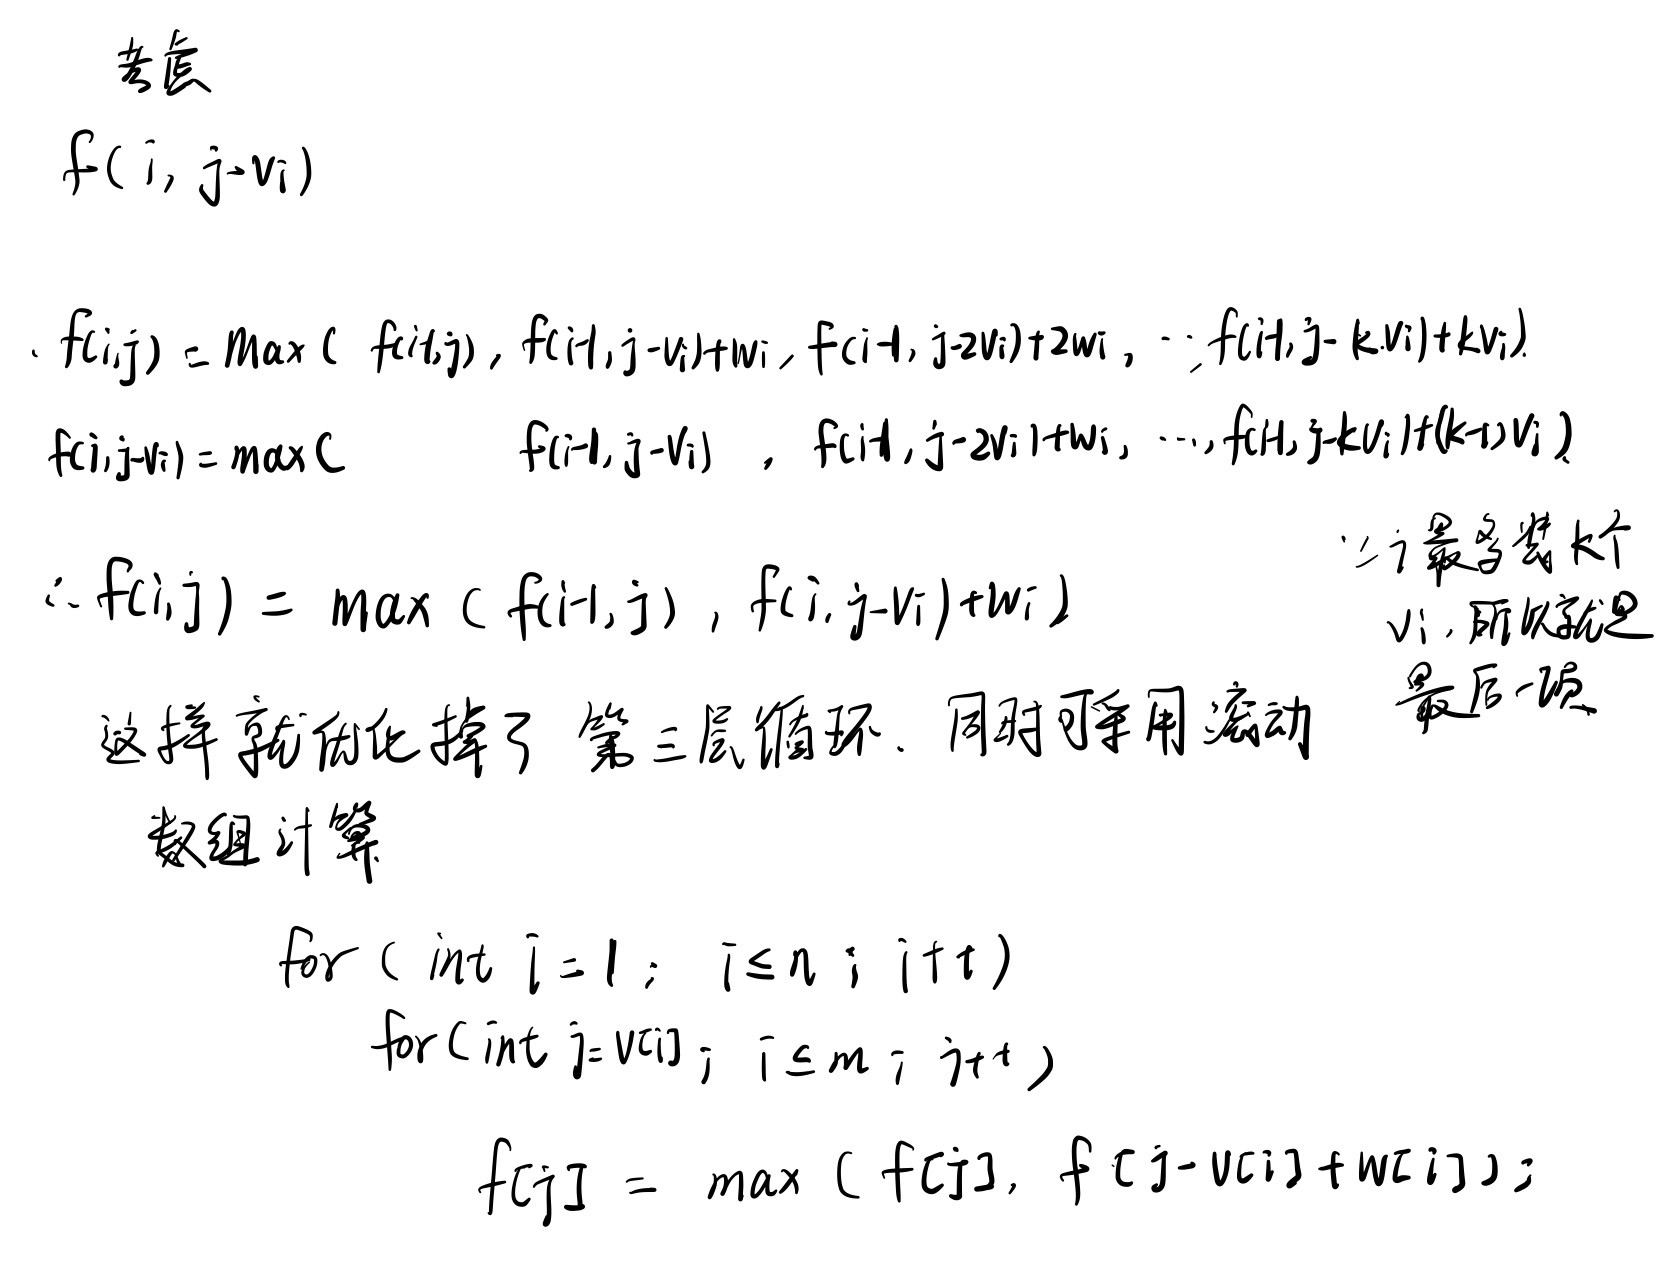 考虑
f(i, j-vi)
f(i,j) = max( f(i-1,j), f(i-1,j-vi)+wi, f(i-1, j-2vi)+2wi, …, f(i-1,j-k·vi)+kvi)
f(i,j-vi) = max( f(i-1,j-vi), f(i-1, j-2vi)+wi, …, f(i-1, j-kvi)+(k-1)vi)
∵ j最多装k个
∴ f(i,j) = max ( f(i-1,j), f(i,j-vi)+wi)
vi, 所以就是
最后一项
这样就优化掉了 第三层循环. 同时可采用滚动
数组计算
for ( int i=1; i≤n; i++)
for(int j=v[i]; i≤m; j++)
f[j] = max ( f[j], f[j-v[i]+w[i]);